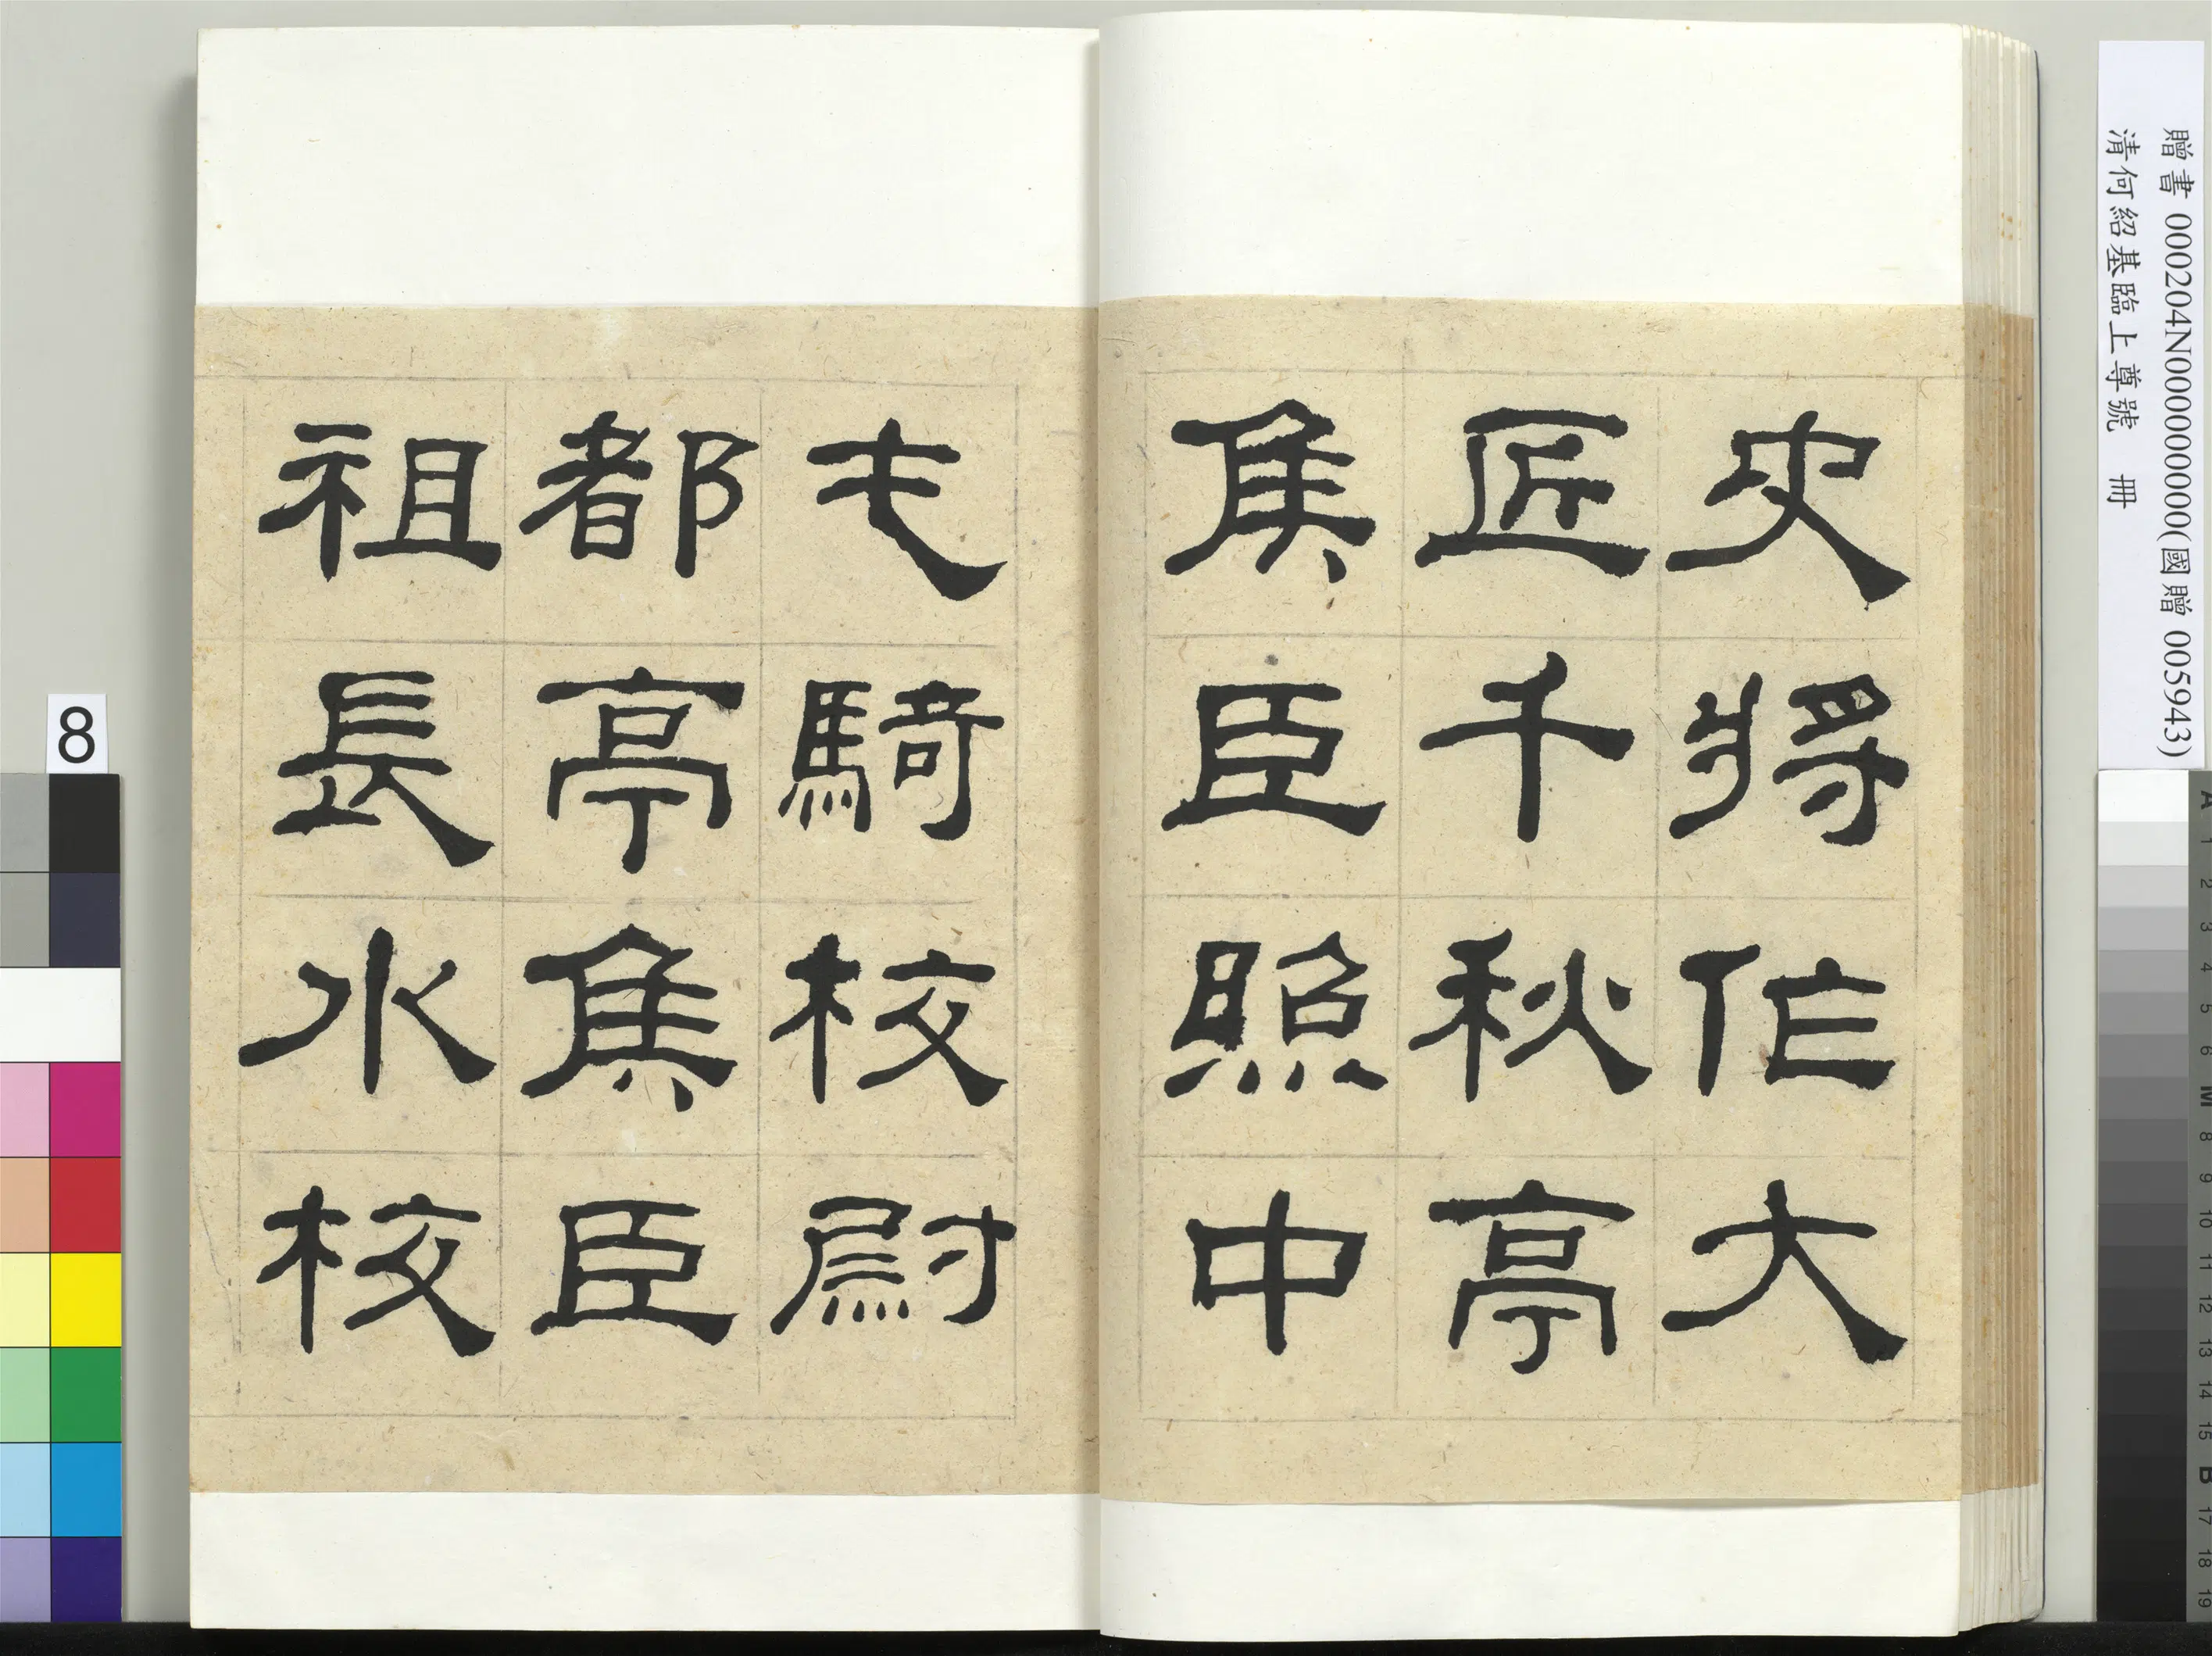 贈書 000204N000000000(國贈 005943)
清何紹基臨上尊號 冊
史將作大
匠千秋亭
侯臣照中
屯騎校尉
都亭侯臣
祖長水校
8
A 1 2 3 4 5 6 M 8 9 10 11 12 13 14 15 B 17 18 19